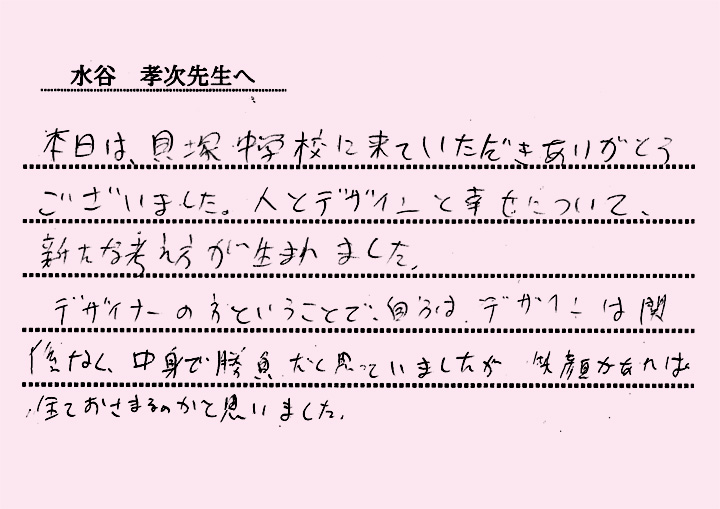 水谷　孝次先生へ
本日は、貝塚中学校に来ていただきありがとう
ございました。人とデザインと幸せについて、
新たな考え方が生まれました。
デザイナーの方ということで、自分は、デザインは関
係なく、中身で勝負だと思っていましたが 笑顔があれば
全ておさまるのかと思いました。